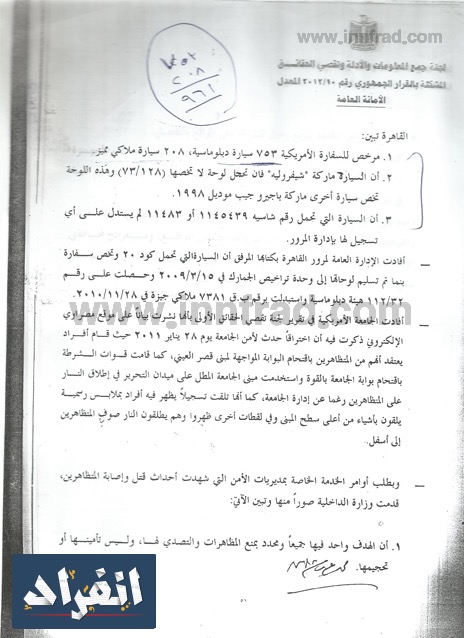 www.innfrad.com
لجنة جمع المعلومات والأدلة وتقصي الحقائق
المشكلة بالقرار الجمهوري رقم ٢٠١٢/١٠ المعدل
الأمانة العامة
٧٥٣
٢٠٨
٩٦١
القاهرة تبين:
١. مرخص للسفارة الأمريكية ٧٥٣ سيارة دبلوماسية، ٢٠٨ سيارة ملاكي مميز.
٢. أن السيارة ماركة "شيفروليه" فان تحمل لوحة لا تخصها (٧٣/١٢٨) وهذه اللوحة
تخص سيارة أخرى ماركة باجيرو جيب موديل ١٩٩٨.
٣. أن السيارة التي تحمل رقم شاسيه ١١٤٥٤٣٩ أو ١١٤٨٣ لم يستدل على أي
تسجيل لها بإدارة المرور.
— أفادت الإدارة العامة لمرور القاهرة بكتابها المرفق أن السيارةالتي تحمل كود ٢٠ وتخص سفارة
بنما تم تسليم لوحاتها إلى وحدة تراخيص الجمارك في ٢٠٠٩/٣/١٥ وحصلت على رقم
١١٢/٣٢ هيئة دبلوماسية واستبدلت برقم ب.ق ٧٣٨١ ملاكي جيزة في ٢٠١٠/١١/٢٨.
www.innfrad.com
أفادت الجامعة الأمريكية في تقرير لجنة تقصي الحقائق الأولى بأنها نشرت بياناً على موقع مصراوي
الإلكتروني ذكرت فيه أن اختراقاً حدث لأمن الجامعة يوم ٢٨ يناير ٢٠١١ حيث قام أفراد
يعتقد أنهم من المتظاهرين باقتحام البوابة المواجهة لمبنى قصر العيني، كما قامت قوات الشرطة
باقتحام بوابة الجامعة بالقوة واستخدمت مبنى الجامعة المطل على ميدان التحرير في إطلاق النار
على المتظاهرين رغما عن إدارة الجامعة، كما أنها تلقت تسجيلاً يظهر فيه أفراد بملابس رسمية
يلقون بأشياء من أعلى سطح المبنى وفي لقطات أخرى ظهروا وهم يطلقون النار صوف المتظاهرين
إلى أسفل.
— وبطلب أوامر الخدمة الخاصة بمديريات الأمن التي شهدت أحداث قتل وإصابة المتظاهرين،
قدمت وزارة الداخلية صوراً منها وتبين الآتي:
١. أن الهدف واحد فيها جميعاً ومحدد بمنع المظاهرات والتصدي لها، وليس تأمينها أو
تحجيمها.
انفراد